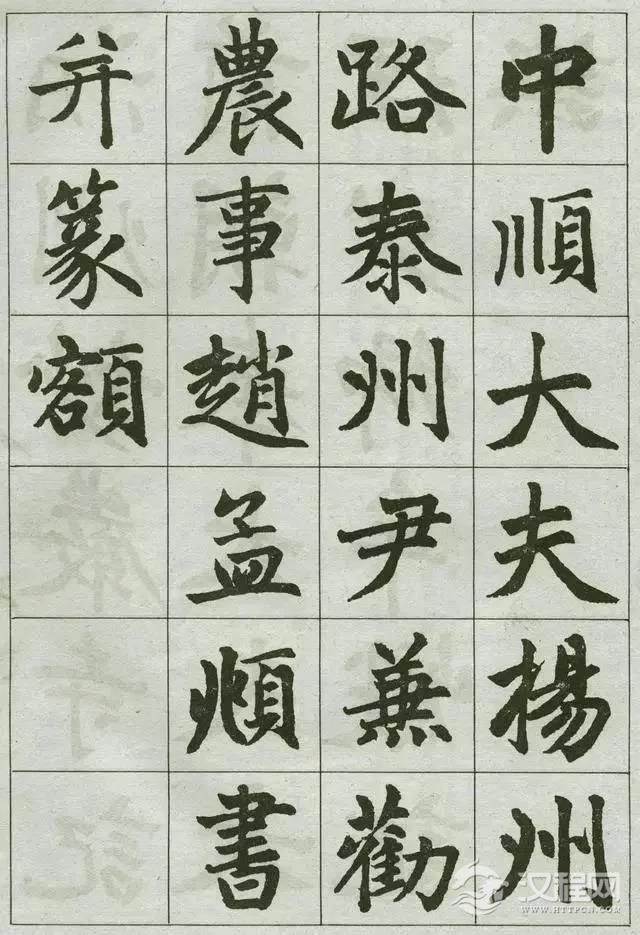 中順大夫揚州
路泰州尹兼勸
農事趙孟頫書
并篆額
汉程网
WWW.HTTPCN.COM